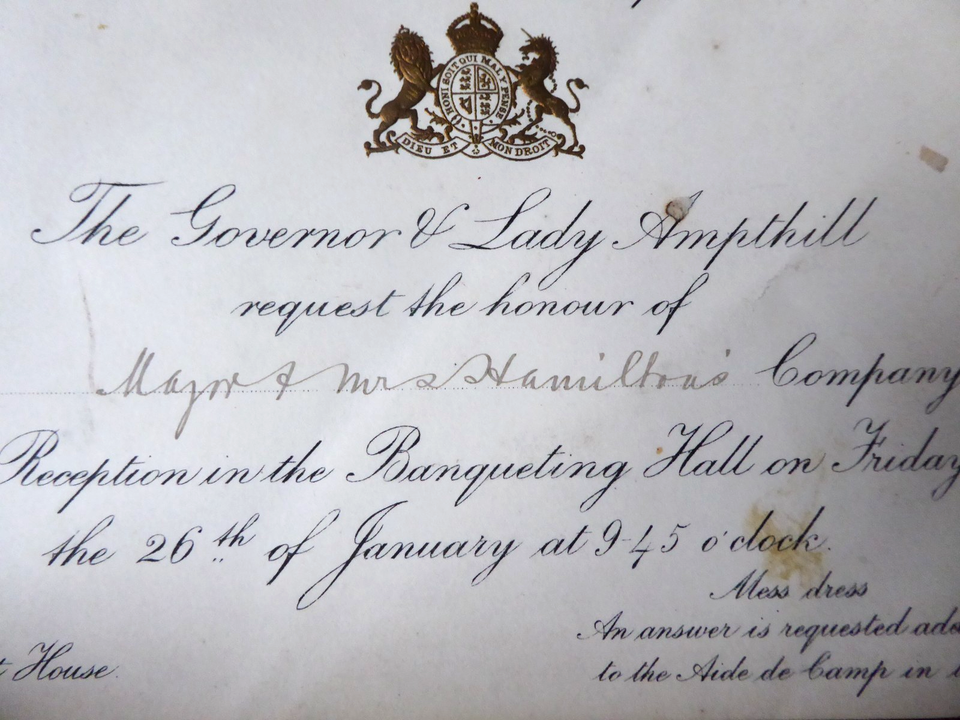 HONI SOIT QUI MAL Y PENSE
DIEU ET MON DROIT
The Governor & Lady Ampthill
request the honour of
Major & Mrs Hamilton's Company
Reception in the Banqueting Hall on Friday
the 26th of January at 9-45 o'clock.
Mess dress
An answer is requested add
to the Aide de Camp in
t House.